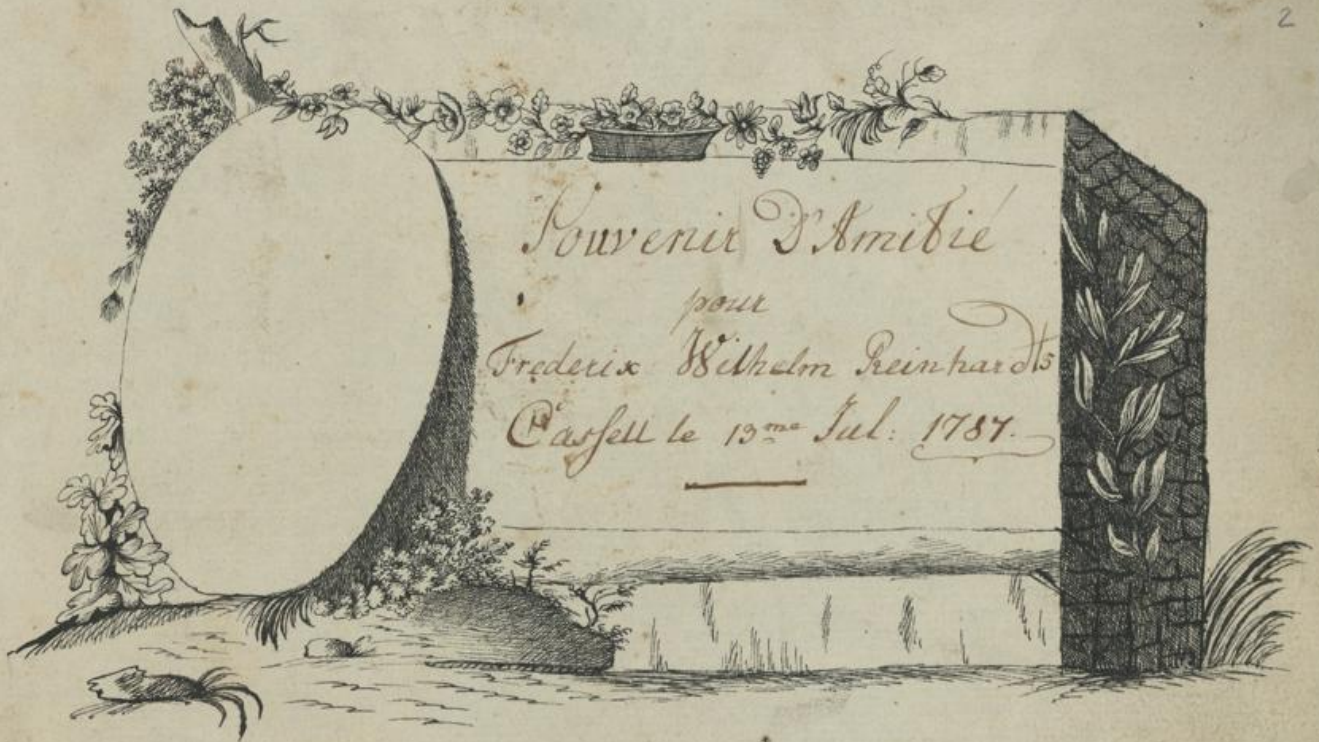 2
Souvenir D'Amitié
pour
Frederix Wilhelm Reinhardts
Cassell le 13me Jul: 1787.